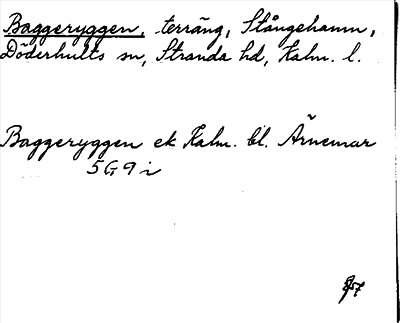 Baggeryggen, terräng, Stångehamn,
Döderhults sn, Stranda hd, Kalm. l.
Baggeryggen ek Kalm. bl. Ärnemar
5G9i